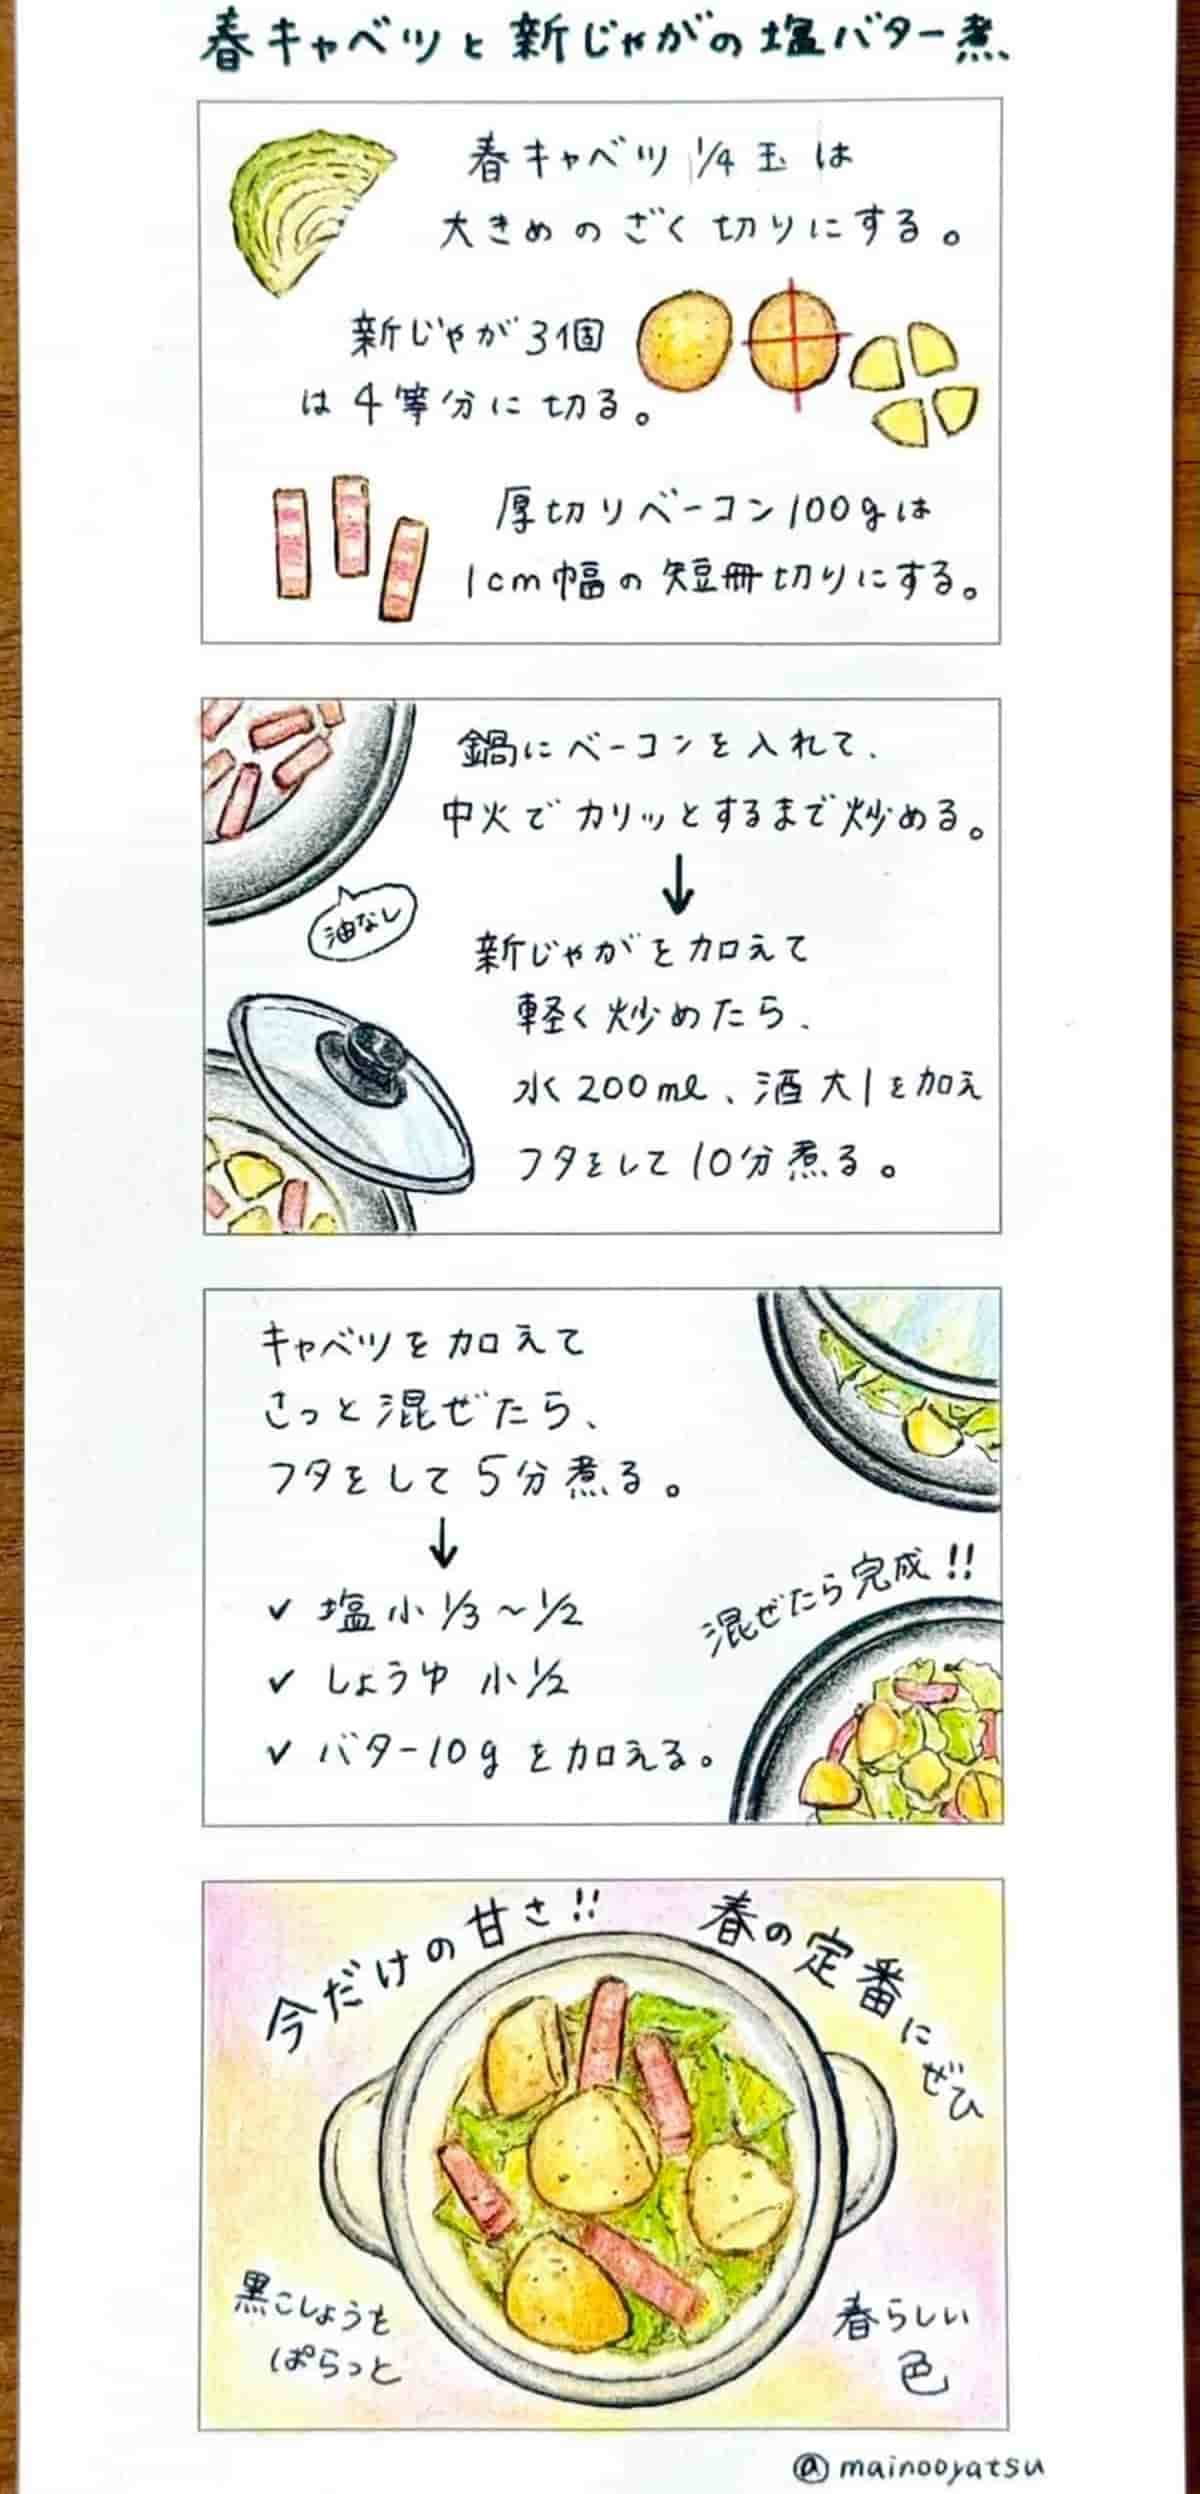 春キャベツと新じゃがの塩バター煮
春キャベツ 1/4玉は
大きめのざく切りにする。
新じゃが3個
は4等分に切る。
厚切りベーコン100gは
1cm幅の短冊切りにする。
鍋にベーコンを入れて、
中火でカリッとするまで炒める。
↓
油なし
新じゃがを加えて
軽く炒めたら、
水200ml、酒大1を加え
フタをして10分煮る。
キャベツを加えて
さっと混ぜたら、
フタをして5分煮る。
↓
✓ 塩小1/3〜1/2
✓ しょうゆ 小1/2
✓ バター10gを加える。
混ぜたら完成!!
今だけの甘さ!!
春の定番にぜひ
黒こしょうを
ぱらっと
春らしい
色
@mainooyatsu